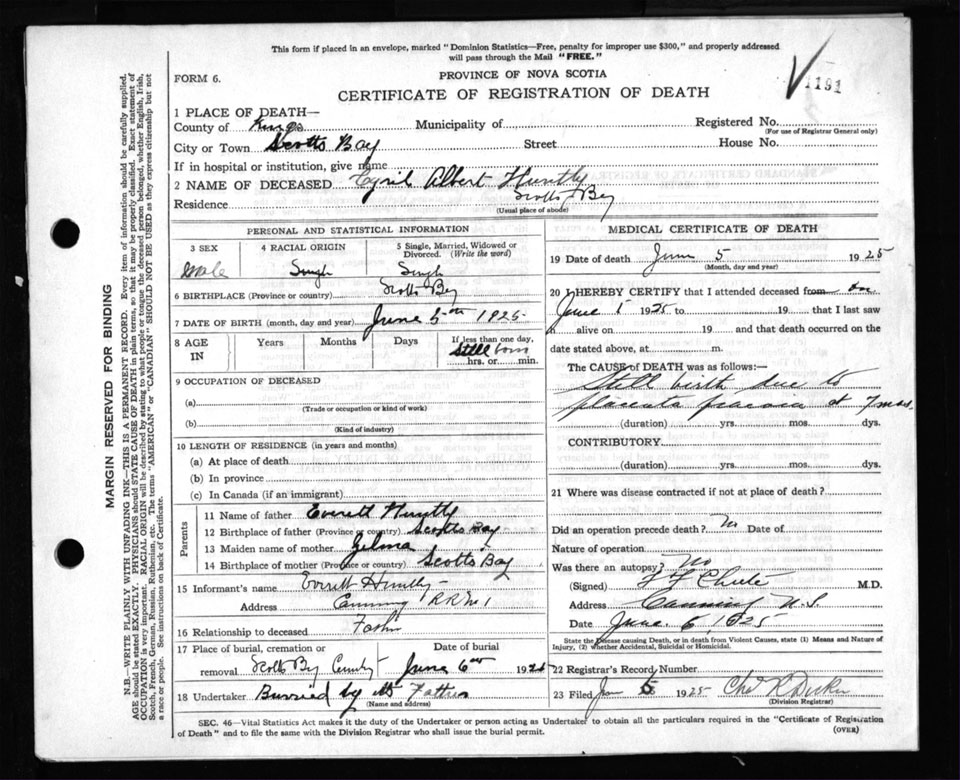 This form if placed in an envelope, marked "Dominion Statistics—Free, penalty for improper use $300," and properly addressed
will pass through the Mail "FREE."
FORM 6.
PROVINCE OF NOVA SCOTIA
1191
CERTIFICATE OF REGISTRATION OF DEATH
1 PLACE OF DEATH—
County of Kings Municipality of Registered No.
(For use of Registrar General only)
City or Town Scotts Bay Street House No.
If in hospital or institution, give name
2 NAME OF DECEASED Cyril Albert Huntly
Residence Scotts Bay
(Usual place of abode)
PERSONAL AND STATISTICAL INFORMATION
3 SEX 4 RACIAL ORIGIN 5 Single, Married, Widowed or Divorced. (Write the word)
Male Single Single
6 BIRTHPLACE (Province or country) Scotts Bay
7 DATE OF BIRTH (month, day and year) June 5th 1925
8 AGE IN Years Months Days If less than one day
Still born
hrs. or min.
9 OCCUPATION OF DECEASED
(a)
(Trade or occupation or kind of work)
(b)
(Kind of industry)
10 LENGTH OF RESIDENCE (in years and months)
(a) At place of death
(b) In province
(c) In Canada (if an immigrant)
Parents
11 Name of father Everett Huntly
12 Birthplace of father (Province or country) Scotts Bay
13 Maiden name of mother Zelma
14 Birthplace of mother (Province or country) Scotts Bay
15 Informant's name Everett Huntly
Address Canning RR No 1
16 Relationship to deceased Father
17 Place of burial, cremation or removal Date of burial
Scotts Bay June 6th 192
18 Undertaker Burried by Father
(Name and address)
MEDICAL CERTIFICATE OF DEATH
19 Date of death June 5 1925
(Month, day and year)
20 I HEREBY CERTIFY that I attended deceased from on
June 5 1925 to 19 that I last saw
alive on 19 and that death occurred on the
date stated above, at m.
The CAUSE of DEATH was as follows:—
Still birth due to
placenta praevia at 7 mos.
(duration) yrs. mos. dys.
CONTRIBUTORY
(duration) yrs. mos. dys.
21 Where was disease contracted if not at place of death?
Did an operation precede death? No Date of
Nature of operation
Was there an autopsy? No
(Signed) Chute M.D.
Address Canning N.S.
Date June 6, 1925
State the Disease causing Death, or in death from Violent Causes, state (1) Means and Nature of
Injury, (2) whether Accidental, Suicidal or Homicidal.
22 Registrar's Record Number
23 Filed 1925
(Division Registrar)
SEC. 46—Vital Statistics Act makes it the duty of the Undertaker or person acting as Undertaker to obtain all the particulars required in the "Certificate of Registration
of Death" and to file the same with the Division Registrar who shall issue the burial permit.
(OVER)
MARGIN RESERVED FOR BINDING
N.B.—WRITE PLAINLY WITH UNFADING INK—THIS IS A PERMANENT RECORD. Every item of information should be carefully supplied.
AGE should be stated EXACTLY. PHYSICIANS should STATE CAUSE OF DEATH in plain terms, so that it may be properly classified. Exact statement of
OCCUPATION is very important. RACIAL ORIGIN will be described by stating to what people or tongue the deceased person belonged, whether English, Irish,
Scotch, French, German, Russian, Ruthenian, etc. The terms "AMERICAN" or "CANADIAN" SHOULD NOT BE USED as they express citizenship but not
a race or people. See instructions on back of Certificate.